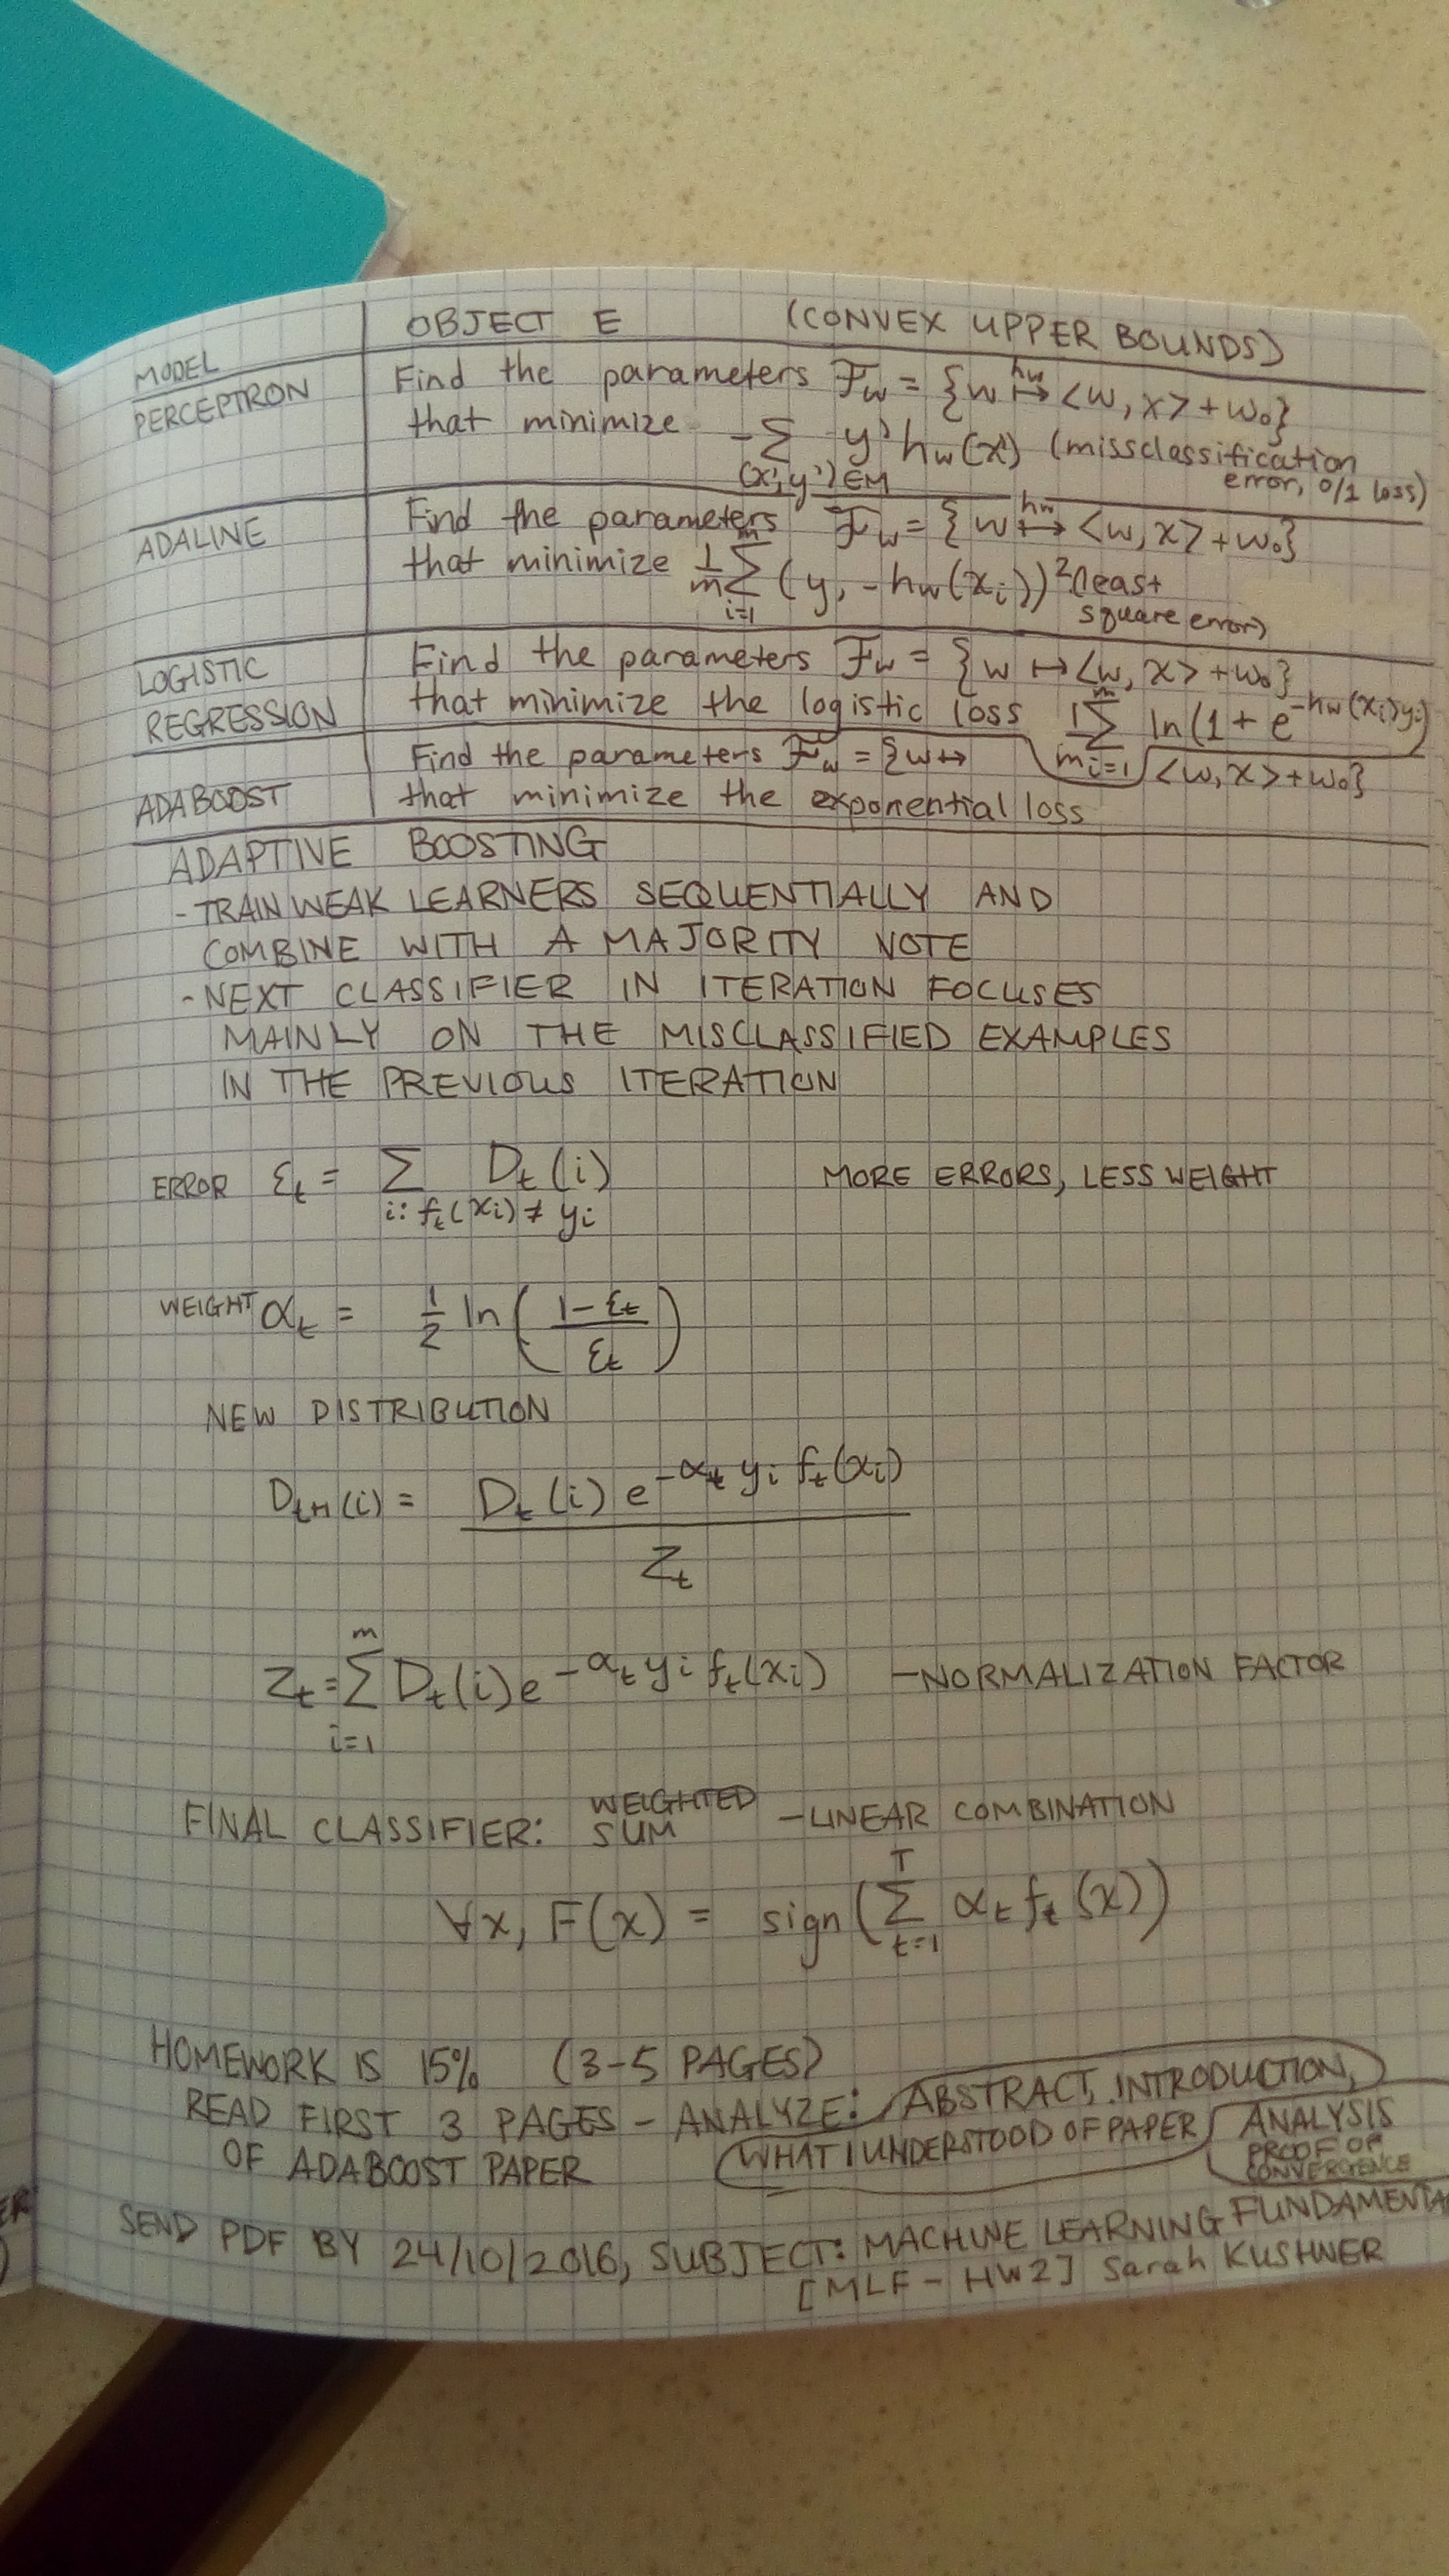 MODEL | OBJECT E (CONVEX UPPER BOUNDS)
PERCEPTRON | Find the parameters F_w = {w ↦^{h_w} <w, x> + w₀}
that minimize -∑_{(x', y') ∈ M} y' h_w(x') (missclassification
error, 0/1 loss)
ADALINE | Find the parameters F_w = {w ↦^{h_w} <w, x> + w₀}
that minimize 1/m ∑_{i=1}^{m} (y, - h_w(x_i))² (least
square error)
LOGISTIC | Find the parameters F_w = {w ↦ <w, x> + w₀}
REGRESSION | that minimize the logistic loss 1/m ∑_{i=1}^{m} ln(1 + e^{-h_w(x_i)y_i})
Find the parameters F_w = {w ↦ <w, x> + w₀}
ADABOOST | that minimize the exponential loss
ADAPTIVE BOOSTING
- TRAIN WEAK LEARNERS SEQUENTIALLY AND
COMBINE WITH A MAJORITY NOTE
- NEXT CLASSIFIER IN ITERATION FOCUSES
MAINLY ON THE MISCLASSIFIED EXAMPLES
IN THE PREVIOUS ITERATION
ERROR ε_t = ∑_{i: f_t(x_i) ≠ y_i} D_t(i) MORE ERRORS, LESS WEIGHT
WEIGHT α_t = 1/2 ln((1-ε_t)/ε_t)
NEW DISTRIBUTION
D_{t+1}(i) = D_t(i) e^{-α_t y_i f_t(x_i)} / Z_t
Z_t = ∑_{i=1}^{m} D_t(i) e^{-α_t y_i f_t(x_i)} - NORMALIZATION FACTOR
FINAL CLASSIFIER: WEIGHTED SUM - LINEAR COMBINATION
∀x, F(x) = sign(∑_{t=1}^{T} α_t f_t(x))
HOMEWORK IS 15% (3-5 PAGES)
READ FIRST 3 PAGES - ANALYZE: ABSTRACT, INTRODUCTION,
OF ADABOOST PAPER WHAT I UNDERSTOOD OF PAPER ANALYSIS
PROOF OF
CONVERGENCE
SEND PDF BY 24/10/2016, SUBJECT: MACHINE LEARNING FUNDAMENTA
[MLF - HW2] Sarah KUSHNER